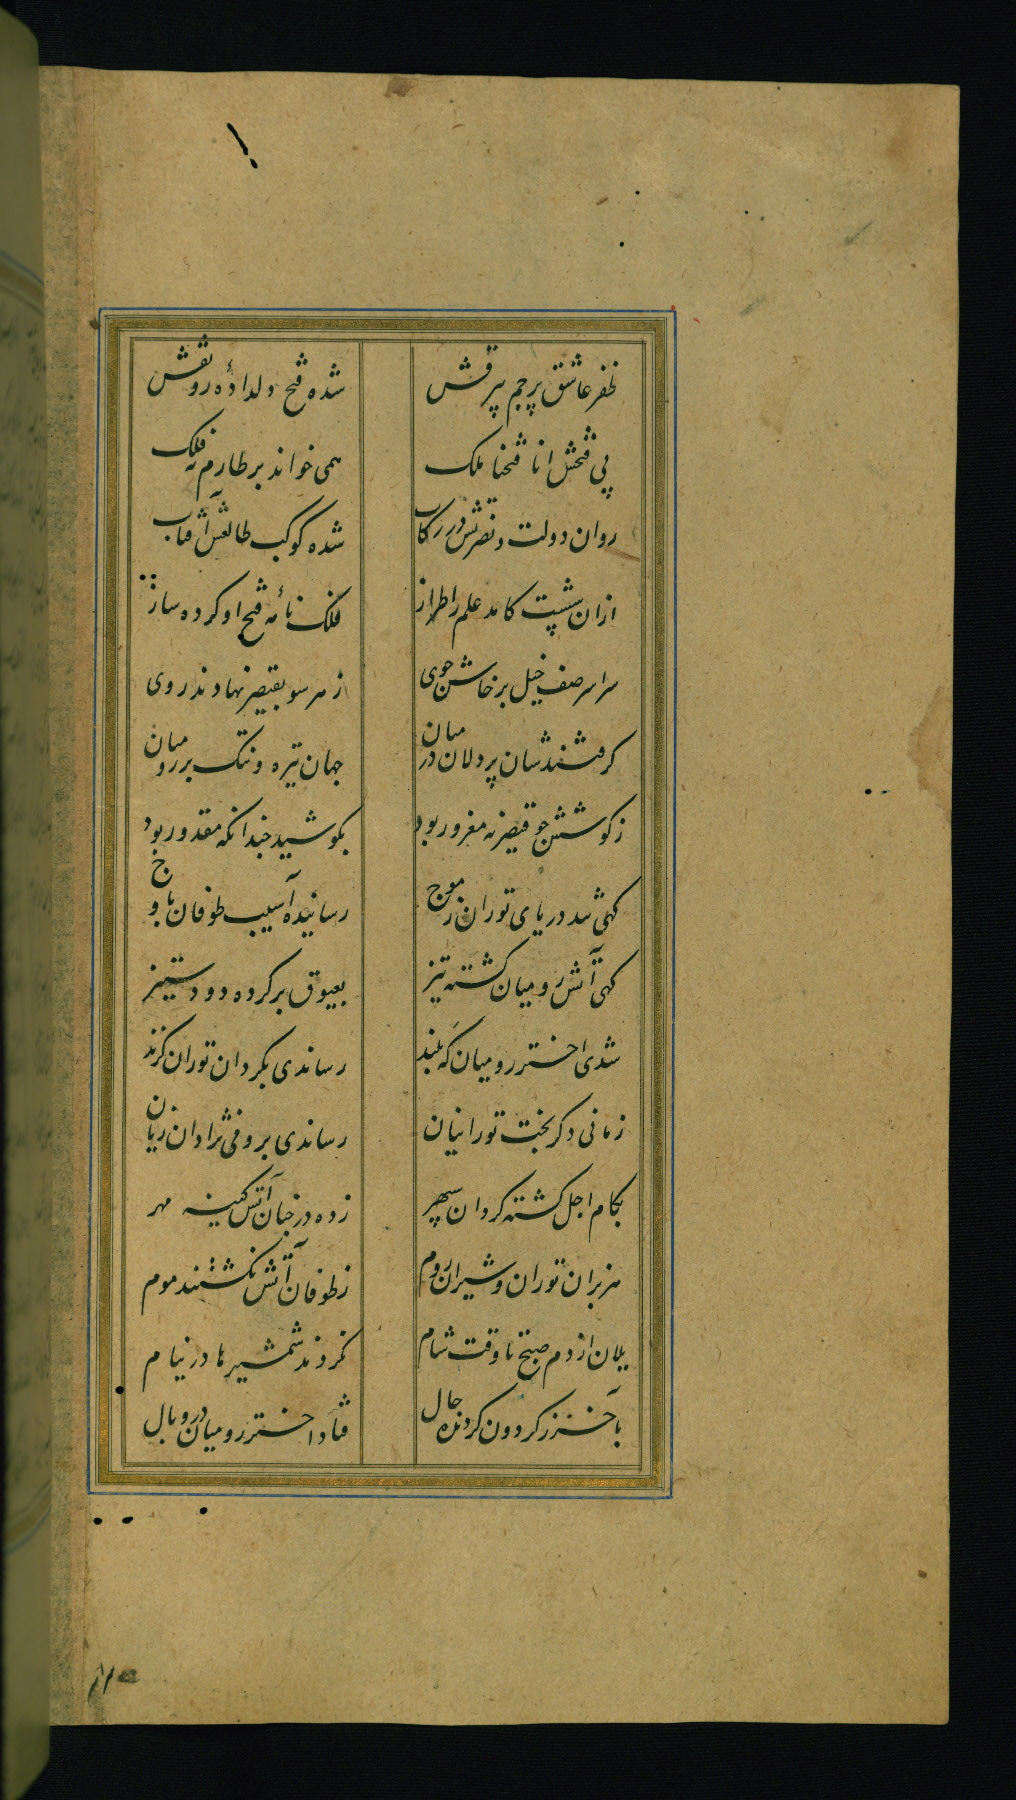 ظفر عاشق پرچم بیرقش شده فتح دلدادهٔ رونقش
پی فتحش انا فتحنا ملک همی خواند بر طارم نه فلک
روان دولت و نصرتش در رکاب شده کوکب طالعش آفتاب
ازان پشت کامد علم را طراز فلک نامهٔ فتح او کرده ساز
سراسر صف خیل پرخاش جوی ز هر سو بقیصر نهادند روی
گرفتندشان پردلان در میان جهان تیره و تنگ بر رومیان
ز کوشش چو قیصر نه مغرور بود بکوشید چندانکه مقدور بود
گهی شد دریای توران ز موج رسانیده آسیب طوفان باوج
گهی آتش رومیان گشته تیز بعیوق بر کرده دود ستیز
شدی اختر رومیان گه بلند رساندی بگردان توران گزند
زمانی دگر بخت تورانیان رساندی برومی نژادان زیان
بکام اجل گشته گردان سپهر زده در جهان آتش کینه مهر
هزبران توران و شیران روم ز طوفان آتش نگشتند موم
یلان از دم صبح تا وقت شام نکردند شمشیرها در نیام
بآخر ز گردون گردنده حال فتاد اختر رومیان در وبال